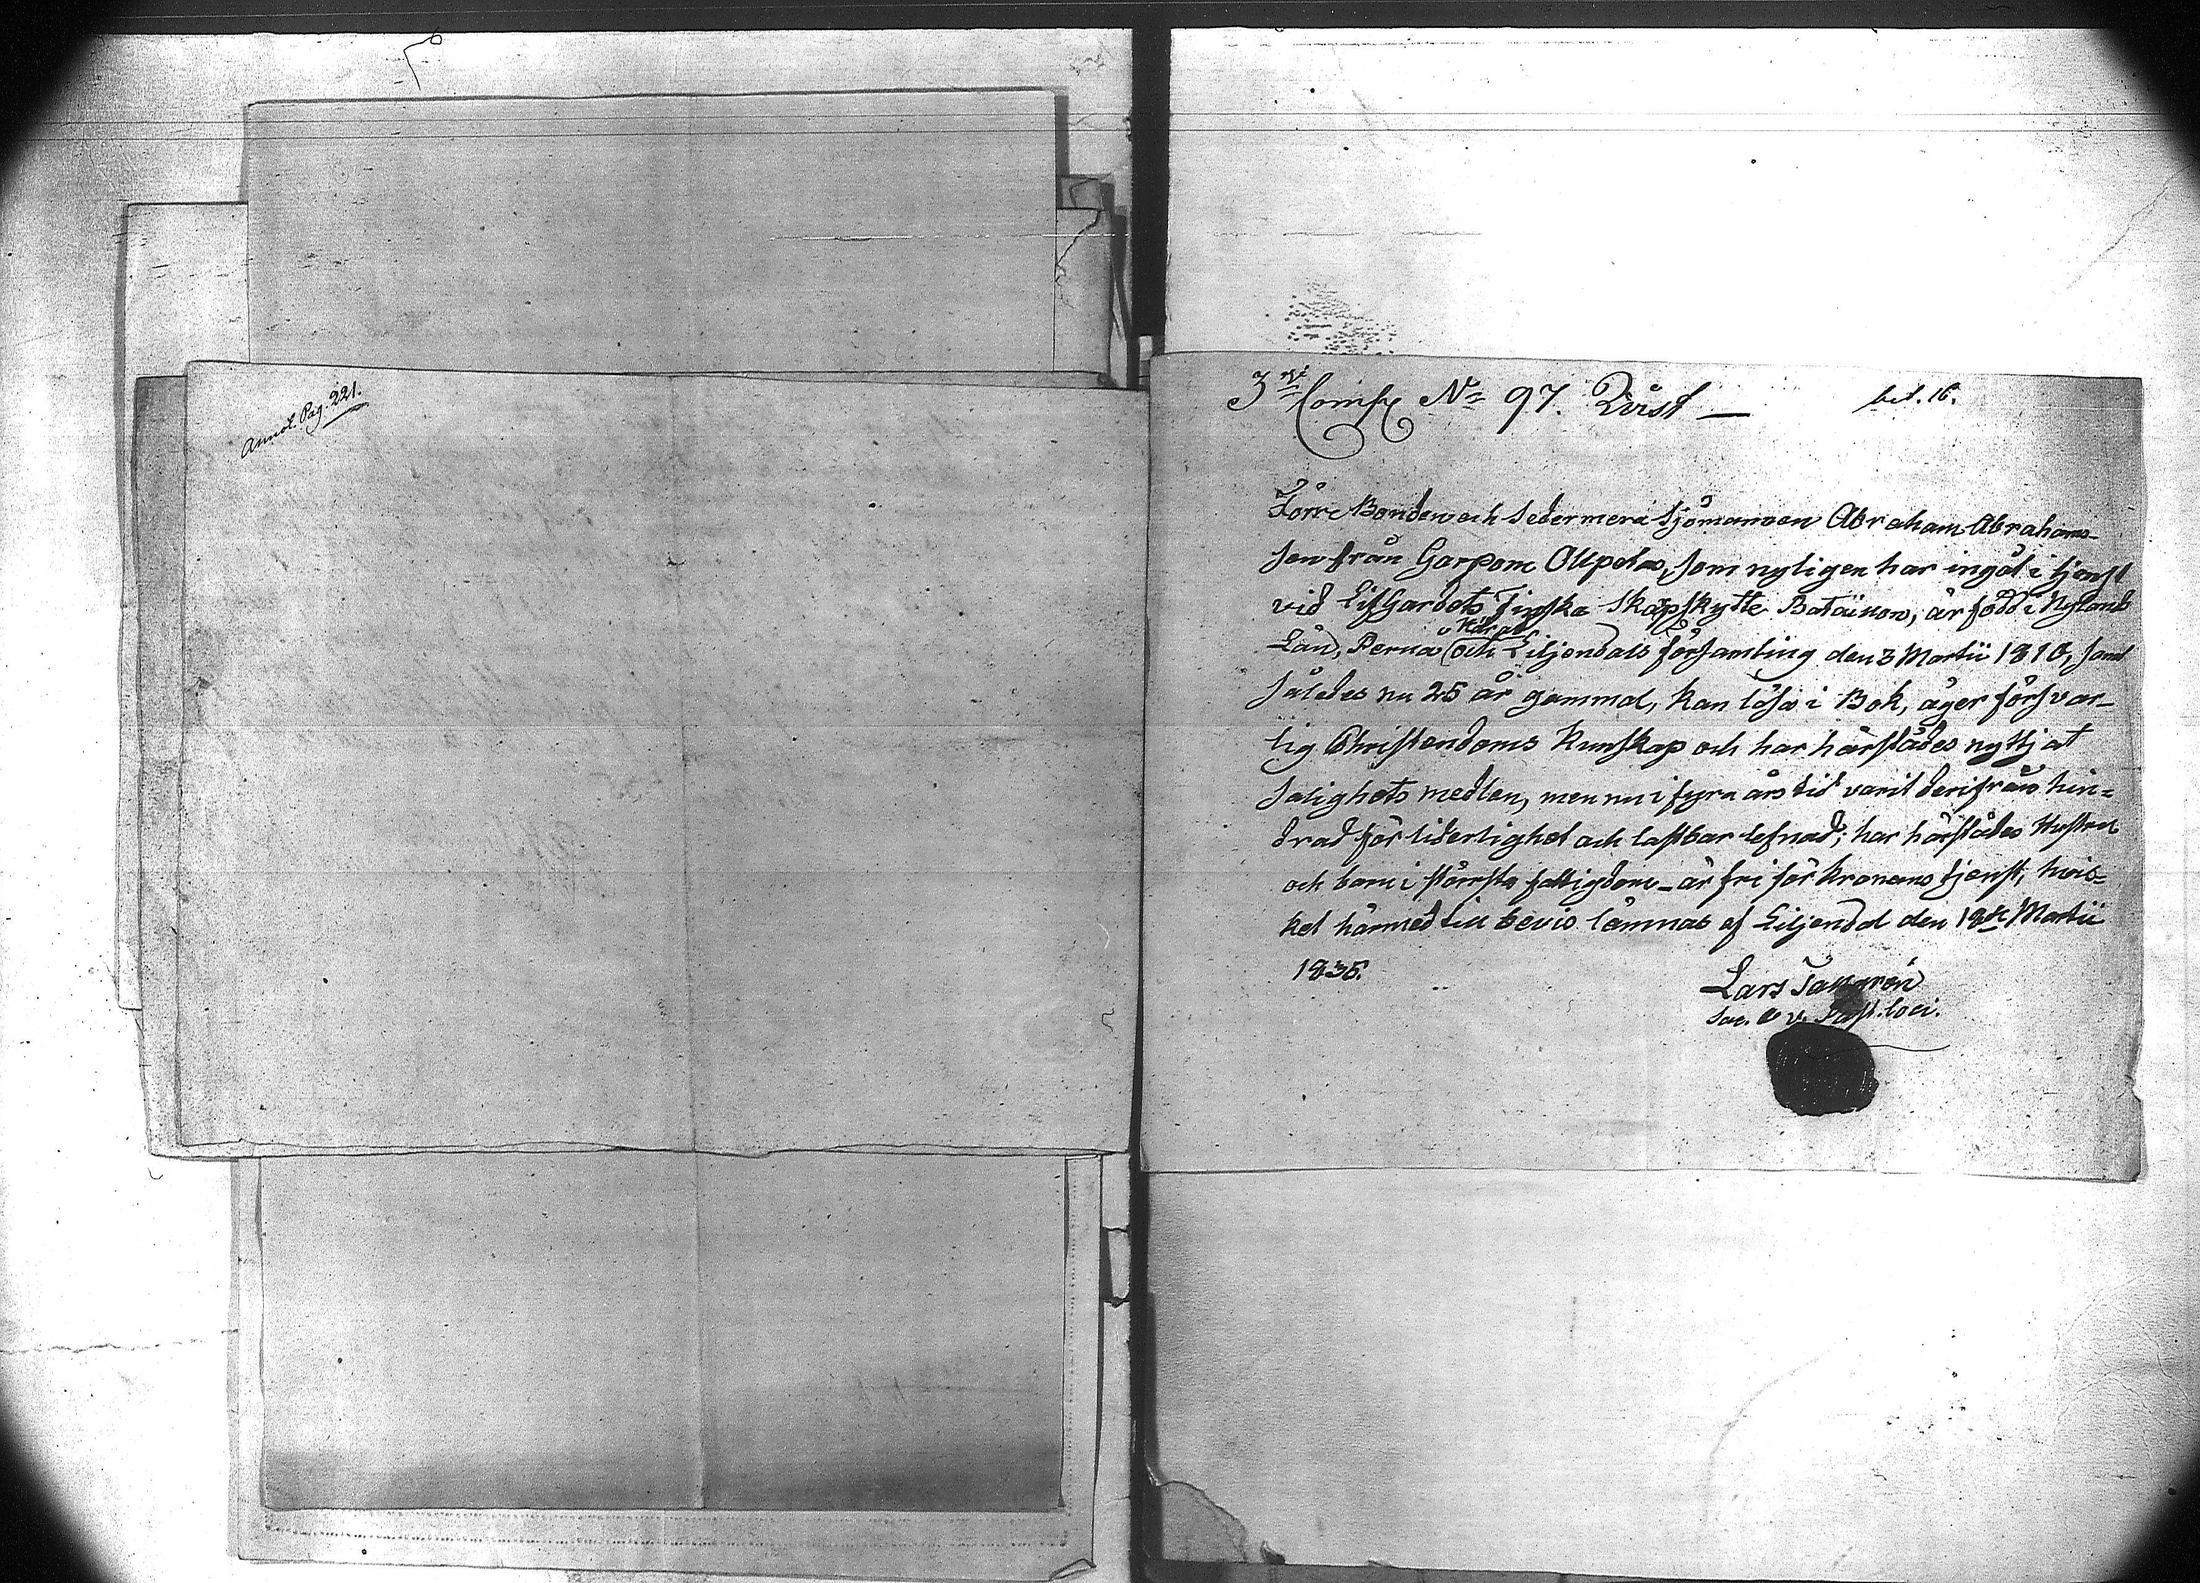 Annot. Pag. 221.
3die Comp. No 97. Qvist — bet. 16.
Förre Bonden och sedermera Sjömannen Abraham Abrahams-
son från Garpom Ollpetas, som nyligen har ingåt i tjenst
vid LifGardets Finska Skarpskytte Bataillon, är född i Nylands
Län, Perna Härad och Liljendals församling den 3 Martii 1810, samt
således nu 25 år gammal, kan läsa i Bok, äger försvar-
lig Christendoms kunskap och har härstädes nyttjat
salighets medlen, men nu i fyra års tid varit derifrån hin-
drad för liderlighet och lastbar lefnad; har härstädes Hustru
och barn i största fattigdom - är fri för Kronans tjenst; hwil-
ket härmed till bevis lämnas af Liljendal den 18de Martii
1835.
Lars Tallgrén
Sac. v. Past. loci.